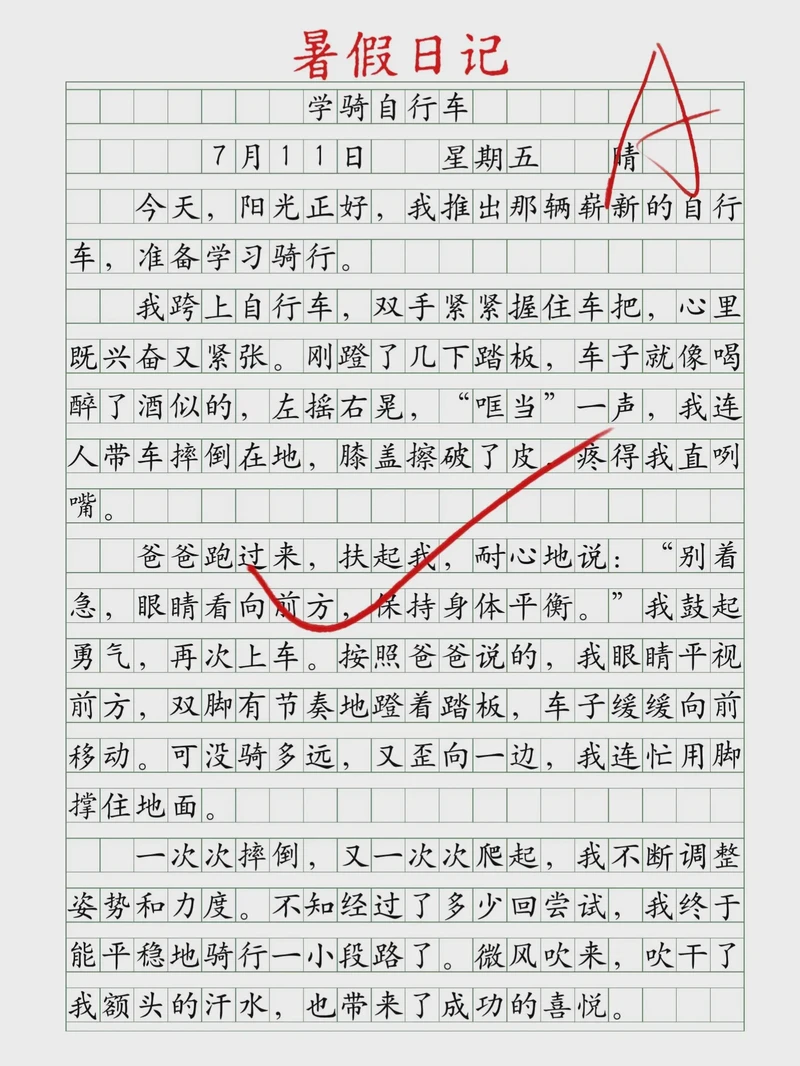 暑假日记
学骑自行车
7月11日 星期五 晴
今天，阳光正好，我推出那辆崭新的自行
车，准备学习骑行。
我跨上自行车，双手紧紧握住车把，心里
既兴奋又紧张。刚蹬了几下踏板，车子就像喝
醉了酒似的，左摇右晃，“哐当”一声，我连
人带车摔倒在地，膝盖擦破了皮，疼得我直咧
嘴。
爸爸跑过来，扶起我，耐心地说：“别着
急，眼睛看向前方，保持身体平衡。”我鼓起
勇气，再次上车。按照爸爸说的，我眼睛平视
前方，双脚有节奏地蹬着踏板，车子缓缓向前
移动。可没骑多远，又歪向一边，我连忙用脚
撑住地面。
一次次摔倒，又一次次爬起，我不断调整
姿势和力度。不知经过了多少回尝试，我终于
能平稳地骑行一小段路了。微风吹来，吹干了
我额头的汗水，也带来了成功的喜悦。
A